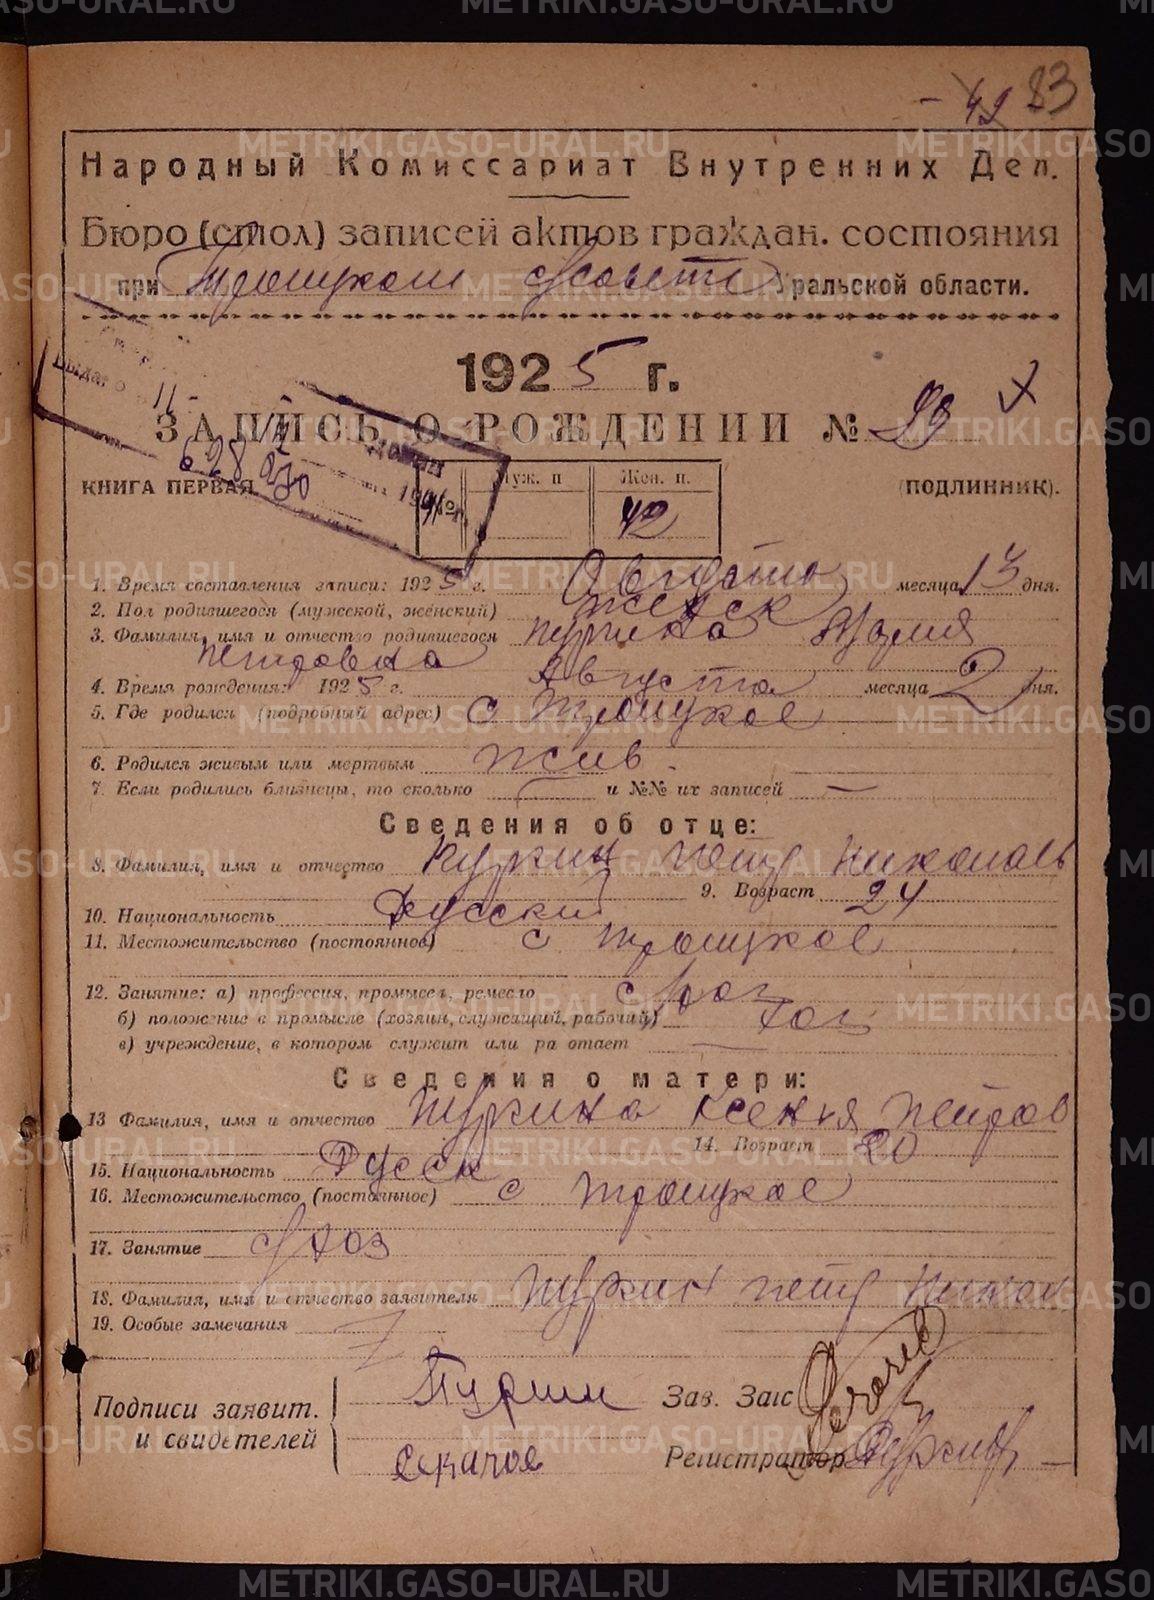 - 42 83
Народный Комиссариат Внутренних Дел.
Бюро (стол) записей актов граждан. состояния
при Троицком с/совете Уральской области.
1925 г.
ЗАПИСЬ О РОЖДЕНИИ №
КНИГА ПЕРВАЯ
Муж. п
Жен. п.
(ПОДЛИННИК).
42
1. Время составления записи: 1925 г. Августа месяца 13 дня.
2. Пол родившегося (мужской, женский) женск
3. Фамилия, имя и отчество родившегося Пуркина Мария
Петровна
4. Время рождения: 1925 г. Августа месяца 2 дня.
5. Где родился (подробный адрес) с Троицкое
6. Родился живым или мертвым жив.
7. Если родились близнецы, то сколько — и №№ их записей —
Сведения об отце:
8. Фамилия, имя и отчество Пуркин Петр Николаев
9. Возраст 24
10. Национальность Русский
11. Местожительство (постоянное) с Троицкое
12. Занятие: а) профессия, промысел, ремесло с/хоз
б) положение в промысле (хозяин, служащий, рабочий) хоз
в) учреждение, в котором служит или работает —
Сведения о матери:
13 Фамилия, имя и отчество Пуркина Ксенья Петров
14. Возраст 20
15. Национальность Русск
16. Местожительство (постоянное) с Троицкое
17. Занятие с/хоз
18. Фамилия, имя и отчество заявителя Пуркин Петр Никол
19. Особые замечания
Подписи заявит.
и свидетелей
Зав. Загс
Регистратор
METRIKI.GASO-URAL.RU